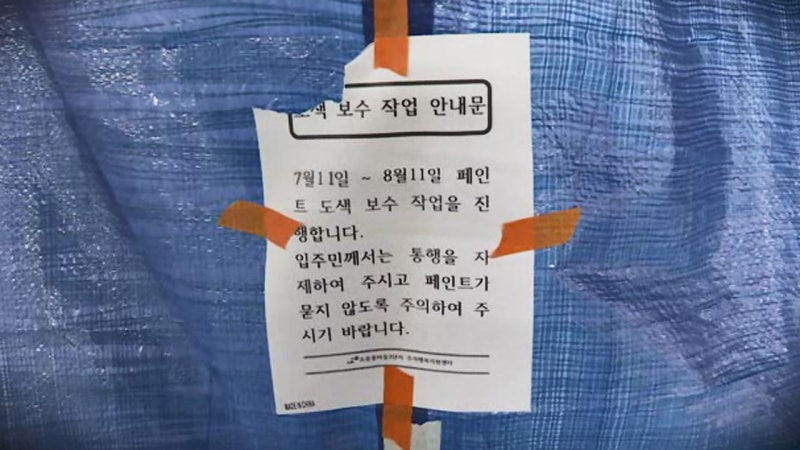 도색 보수 작업 안내문
7월11일 ~ 8월11일 페인
트 도색 보수 작업을 진
행합니다.
입주민께서는 통행을 자
제하여 주시고 페인트가
묻지 않도록 주의하여 주
시기 바랍니다.
MADE IN CHINA